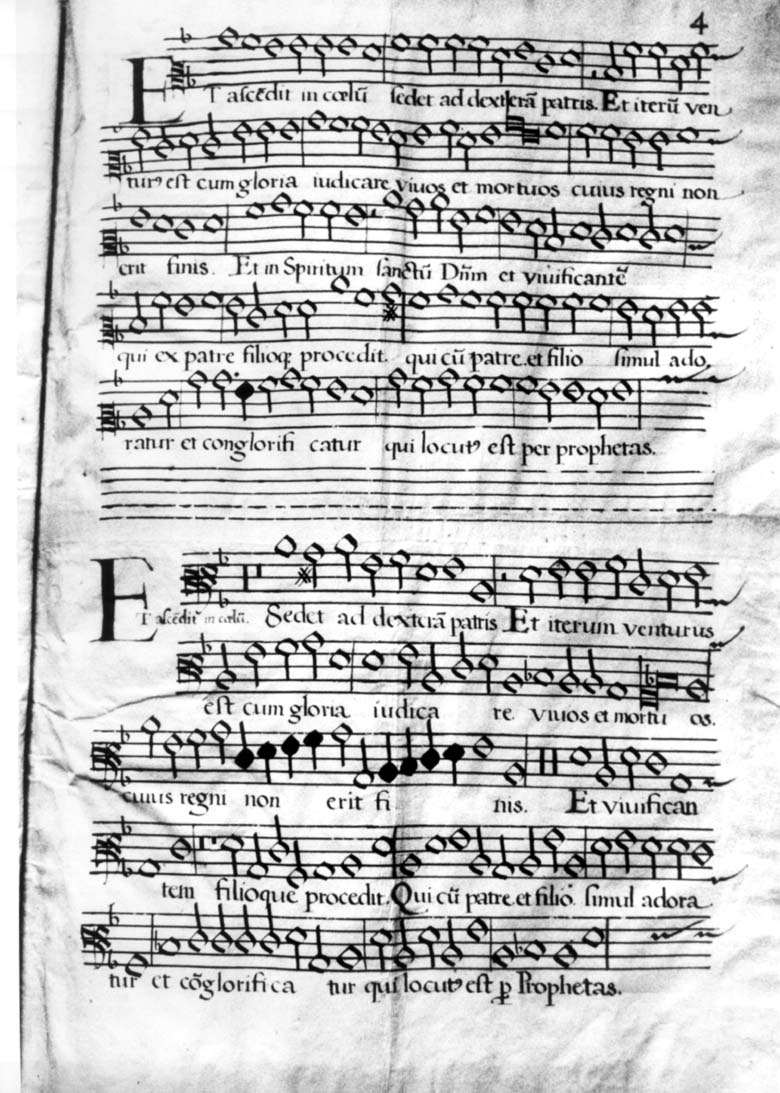 4
ET ascẽdit in cœlũ sedet ad dexterã patris. Et iterũ ven
turꝰ est cum gloria iudicare viuos et mortuos cuius regni non
erit finis. Et in Spiritum sanctũ Dñm et viuificantẽ
qui ex patre filioqꝫ procedit. qui cũ patre et filio simul ado,
ratur et conglorifi catur qui locutꝰ est per prophetas.
ET ascẽdit in cœlũ. Sedet ad dexterã patris Et iterum venturus
est cum gloria iudica re. viuos et mortu os.
cuius regni non erit fi nis. Et viuifican
tem filioque procedit. Qui cũ patre et filio simul adora
tur et cõglorifica tur qui locutꝰ est ꝑ Prophetas.